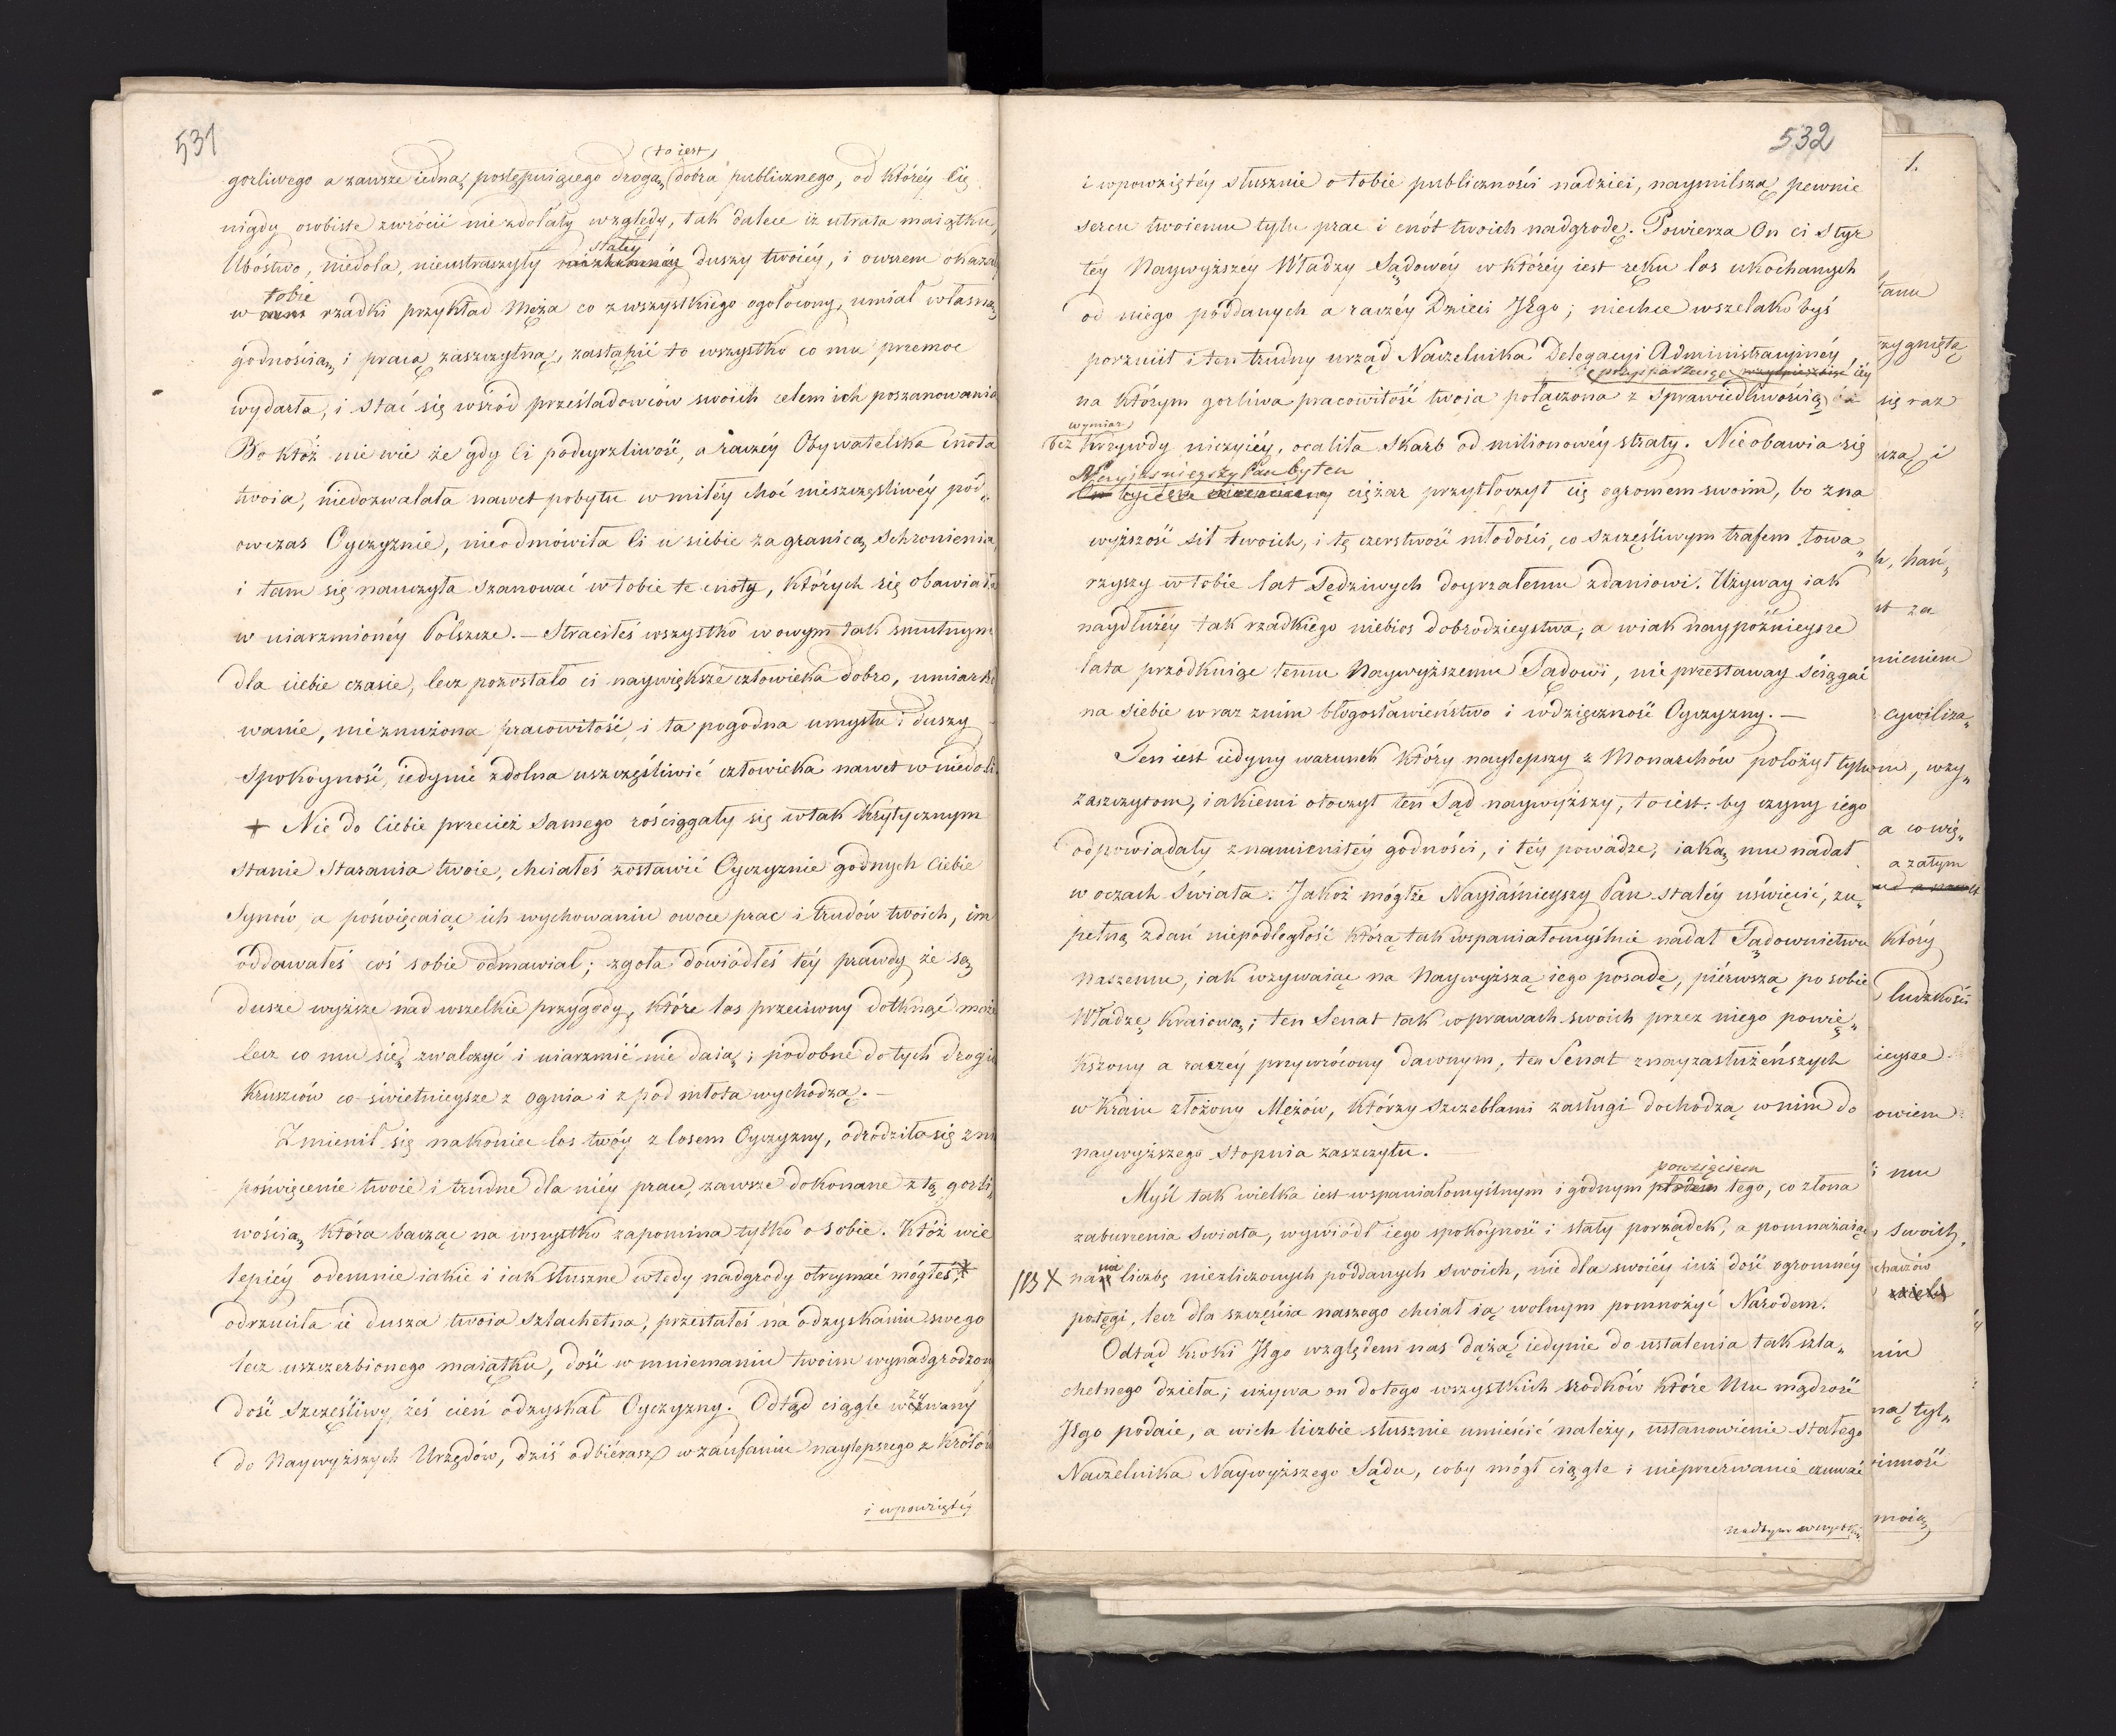 531
(to iest)
gorliwego a zawsze iedną postępuiącego drogą (dobra publicznego, od któréy Cię
nigdy osobiste zwrócić nie zdołały względy, tak dalece iż utrata maiątku,
stałey
Ubóstwo, niedola, nieustraszyły duszy twoiéy, i owszem okazał
tobie
w rzadki przykład Męża co z wszystkiego ogołocony, umiał własną
godnością, i pracą zaszczytną, zastąpić to wszystko co mu przemoc
wydarła, i stać się wśród prześladowców swoich celem ich poszanowania
Bo któż nie wie że gdy Ci podeyrzliwość, a raczéy Obywatelska cnota
twoia, niedozwalała nawet pobytu w miłéy choć nieszczęśliwéy pód„
owczas Oyczyznie, nieodmówiła Ci u siebie za granicą schronienia,
i tam się nauczyła szanować w tobie te cnoty, których się obawiała
w uiarzmionéy Polszcze. — Straciłeś wszystko w owym tak smutnym
dla ciebie czasie, lecz pozostało ci naywiększe człowieka dobro, umiarko
wanie, nieznużona pracowitość, i ta pogodna umysłu i duszy
spokoyność, iedynie zdolna uszczęśliwić człowieka nawet w niedoli.
+ Nie do Ciebie przecież samego rościągały się w tak krytycznym
stanie starania twoie, chciałeś zostawić Oyczyznie godnych Ciebie
Synów, a poświęcaiąc ich wychowaniu owoce prac i trudów twoich, im
oddawałeś coś sobie odmawiał; zgoła dowiódłeś téy prawdy, że są
dusze wyższe nad wszelkie przygody, które los przeciwny dotknąć może
lecz co mu się zwalczyć i uiarzmić nie daią; podobne do tych drogic
kruszców co świetnieysze z ognia i z pod młota wychodzą. —
Zmienił się nakoniec los twóy z losem Oyczyzny, odrodziła się z nią
poświęcenie twoie i trudne dla niéy prace, zawsze dokonane z tą gorli„
wością, która bacząc na wszystko zapomina tylko o sobie. Któż wie
lepiéy odemnie iakie i iak słuszne wtedy nadgrody otrzymać mógłeś,
odrzuciła ie dusza twoia szlachetna, przestałeś na odzyskaniu swego
lecz uszczerbionego maiątku, dość w mniemaniu twoim wynadgrodzony
dość szczęśliwy, żeś cień odzyskał Oyczyzny. Odtąd ciągle wzywany
do Naywyższych Urzędów, dziś odbiérasz w zaufaniu naylepszego z Królów
i wpowziętéy
532
i wpowziętéy słusznie o tobie publiczności nadziei, naymilszą pewnie
sercu twoiemu tylu prac i cnót twoich nadgrodę. Powierza On ci styr
téy Naywyższéy Władzy Sądowéy w któréy iest ręku los ukochanych
od niego poddanych a raczéy Dzieci JEgo; niechce wszelako byś
porzucił i ten trudny urząd Naczelnika Delegacyi Administracyinéy,
przysparzaiąc iéy
na którym gorliwa pracowitość twoia połączona z sprawiedliwością
wymiar
bez krzywdy niczyiéy, ocaliła skarb od milionowéy straty. Nieobawia się
Nayjaśnieyszy Pan by ten
ciężar przytłoczył cię ogromem swoim, bo zna
wyższość sił twoich, i tę czerstwość młodości, co szczęśliwym trafem towa„
rzyszy w tobie lat sędziwych doyrzałemu zdaniowi. Używay iak
naydłużéy tak rzadkiego niebios dobrodzieystwa, a w iak naypóźnieysze
lata przodkuiąc temu Naywyższemu Sądowi, nie przestaway ściągać
na siebie wraz z nim błogosławieństwo i wdzięczność Oyczyzny. —
Ten iest iedyny warunek który naylepszy z Monarchów położył tylu
zaszczytom, iakiemi otoczył ten Sąd naywyższy, to iest: by czyny iego
odpowiadały znamienitéy godności, i téy powadze, iaką mu nadał
w oczach świata. Jakoż mógłże Nayiaśnieyszy Pan staléy uświęcić, zu„
pełną zdań niepodległość którą tak wspaniałomyślnie nadał Sądownictwu
naszemu, iak wzywaiąc na Naywyższą iego posadę, piérwszą po sobie
Władzę kraiową; ten Senat tak w prawach swoich przez niego powię„
kszony a raczéy przywrócony dawnym, ten Senat z nayzasłużeńszych
w Kraiu złożony Mężów, którzy szczeblami zasługi dochodzą w nim do
naywyższego stopnia zaszczytu.
powzięciem
Myśl tak wielka iest wspaniałomyślnym i godnym płodem tego, co z łona
zaburzenia świata, wywiódł iego spokoyność i stały porządek, a pomnażaiąc
X nami liczbę niezliczonych poddanych swoich, nie dla swoiéy iuż dość ogromnéy
potęgi, lecz dla szczęścia naszego chciał ią wolnym pomnożyć Narodem.
Odtąd kroki JEgo względem nas dążą iedynie do ustalenia tak szla„
chetnego dzieła; używa on do tego wszystkich srodków które Mu mądrość
JEgo podaie, a w ich liczbie słusznie umieścić należy, ustanowienie stałego
Naczelnika Naywyższego Sądu, coby mógł ciągle i nieprzerwanie czuwać
nad tym wszystkim
1.
zygniętą
się raz
czą i
st za
mieniem
cywiliza„
m, wzy„
a co wię„
a zatym
który
ludzkości
ieysze
owiem
mu
swoich,
ną tyl„
inność
moią,